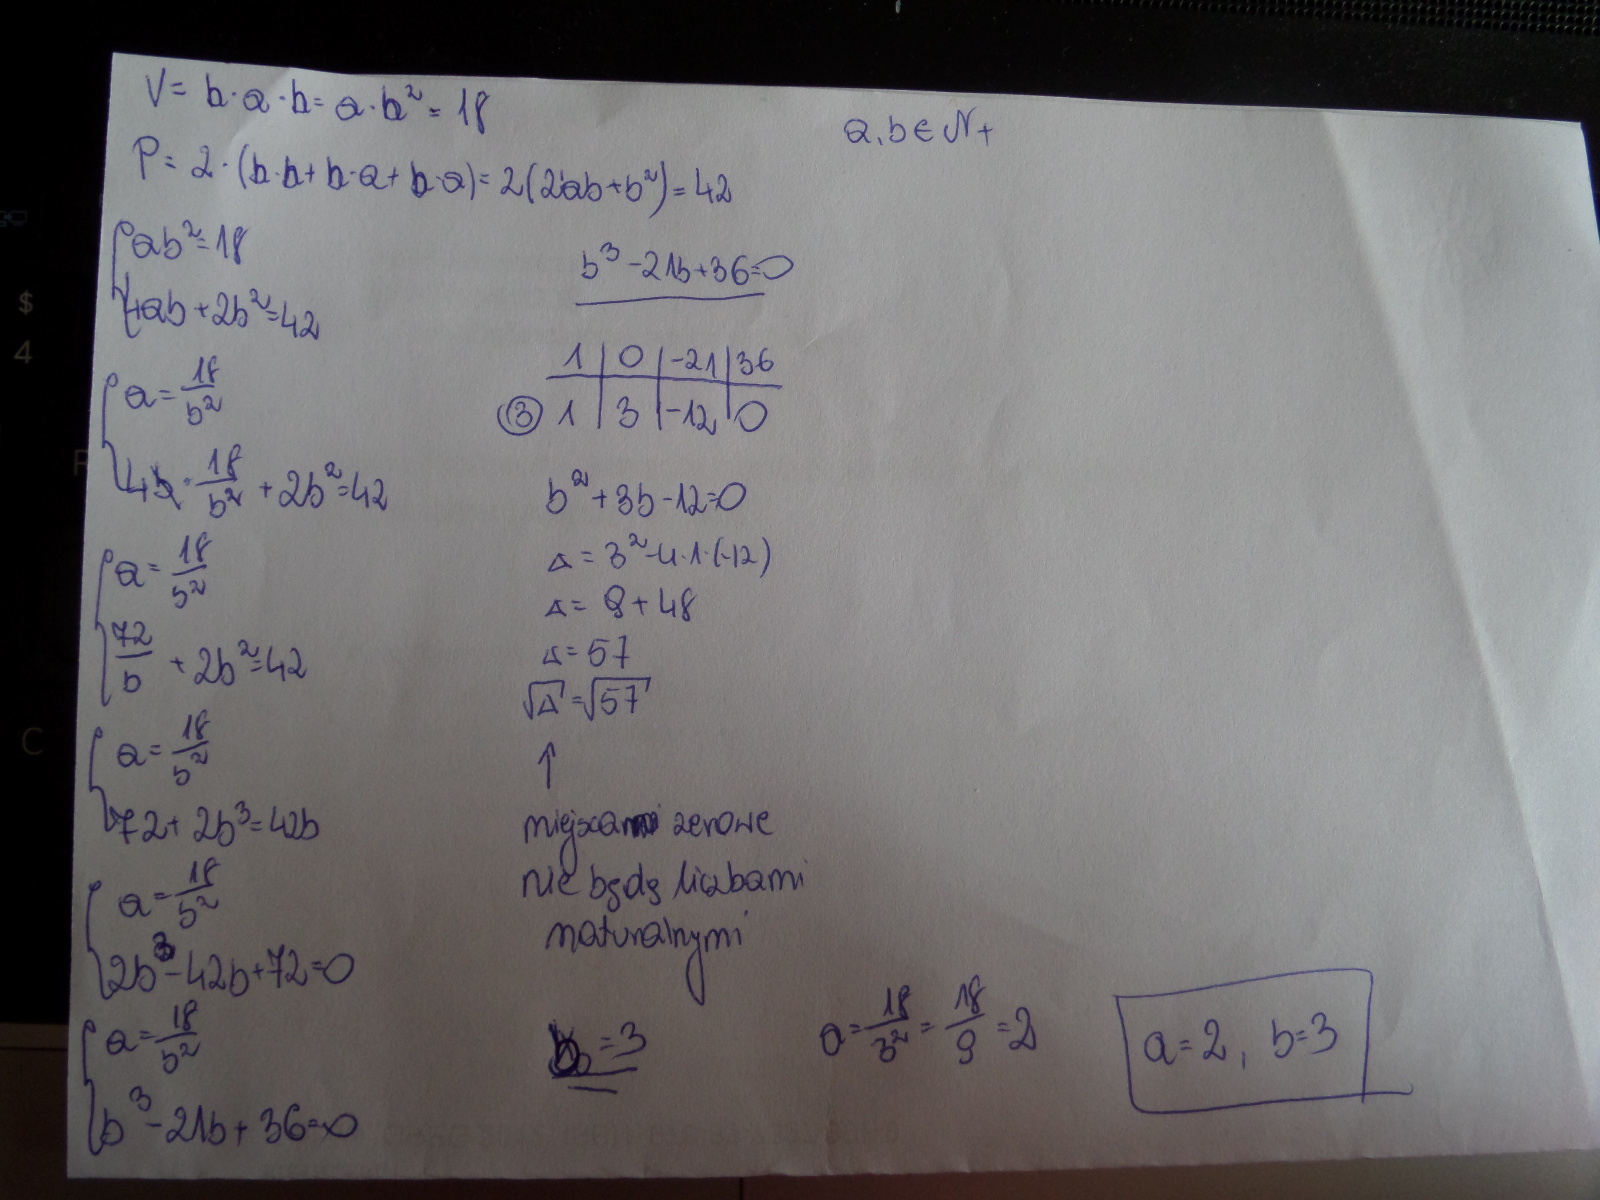 V = b·a·b = a·b² = 18
P = 2·(b·b+b·a+b·a) = 2(2ab+b²) = 42
ab² = 18
4ab + 2b² = 42
a = 18/b²
4b · 18/b² + 2b² = 42
a = 18/b²
72/b + 2b² = 42
a = 18/b²
72 + 2b³ = 42b
a = 18/b²
2b³ - 42b + 72 = 0
a = 18/b²
b³ - 21b + 36 = 0
a,b ∈ N+
b³ - 21b + 36 = 0
1 | 0 | -21 | 36
3 1 | 3 | -12 | 0
b² + 3b - 12 = 0
Δ = 3² - 4·1·(-12)
Δ = 9 + 48
Δ = 57
√Δ = √57
↑
miejsca zerowe
nie będą liczbami
naturalnymi
b = 3
a = 18/3² = 18/9 = 2
a = 2, b = 3
$
4
R
C